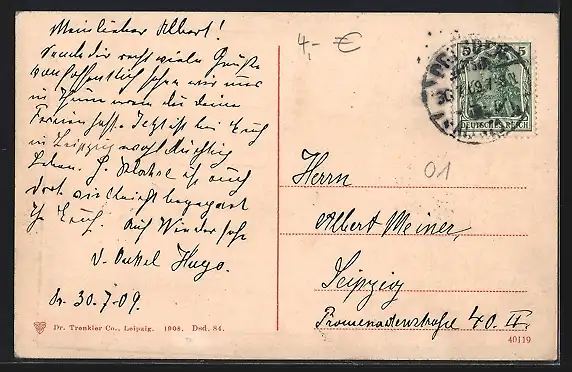 Mein lieber Albert!
Sende dir recht viele Grüße
hoffentlich sehen wir uns
in wenn du deine
Ferien hast. Jetzt ist bei Euch
in Leipzig wohl tüchtig
Leben. H. ist auch
dort vielleicht begegnet
Ihr Euch. Auf Wiedersehn
v. Onkel Hugo.
Dr. 30.7.09.
Dr. Trenkler Co., Leipzig. 1908. Dsd. 84.
4,- €
5 5
DRESDEN
DEUTSCHES REICH
01
Herrn
Albert Meiner,
Leipzig
Promenadenstraße 40. II.
40119